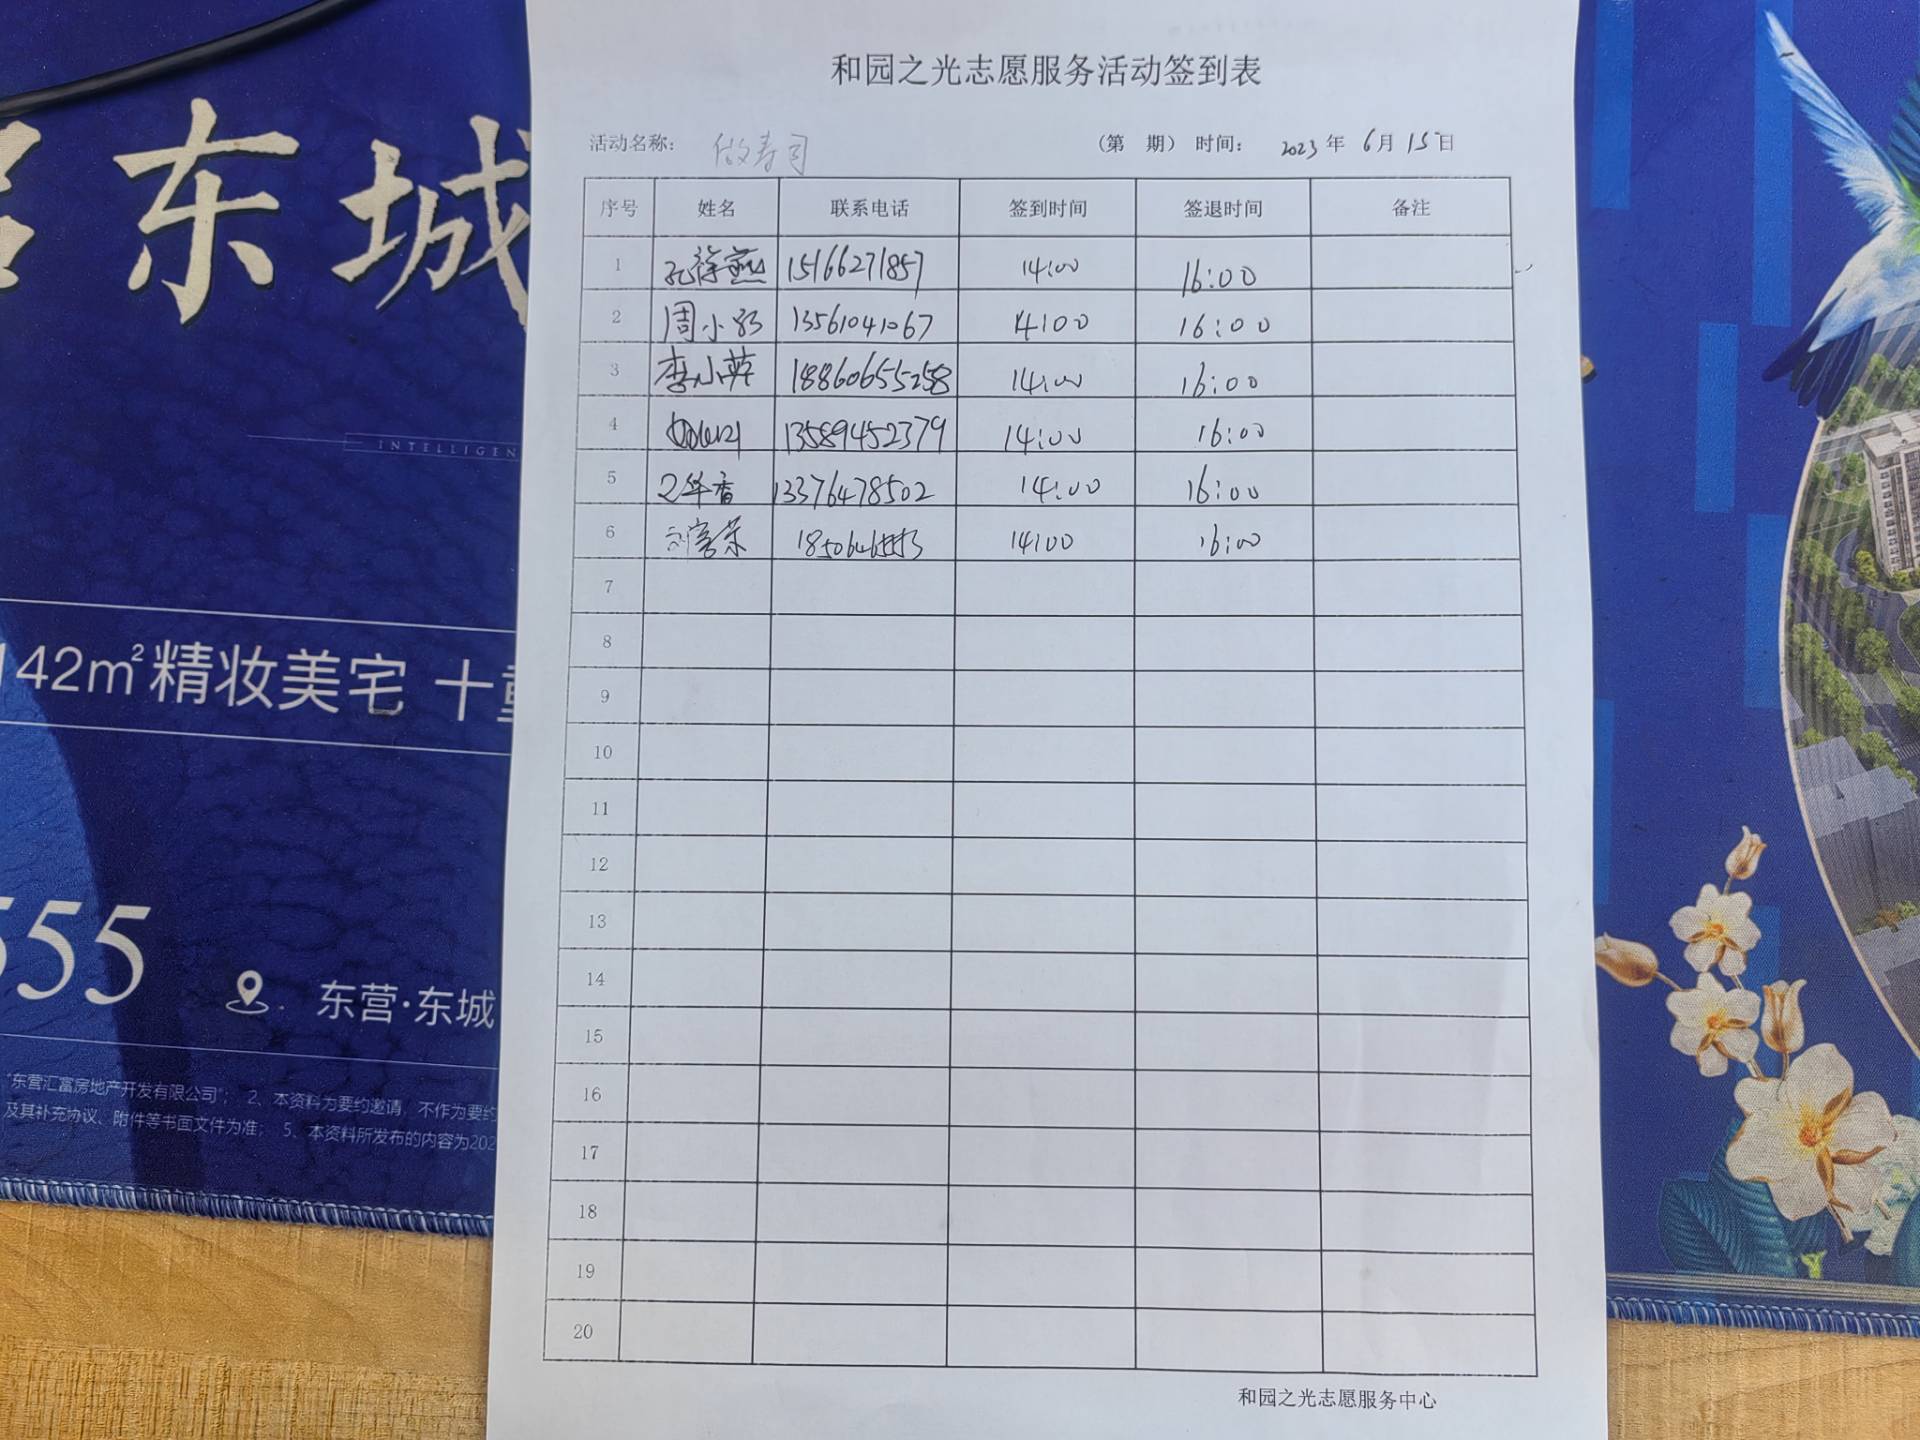 和园之光志愿服务活动签到表
活动名称： 做寿司 （第 期） 时间： 2023 年 6月 15日
序号 姓名 联系电话 签到时间 签退时间 备注
1 孔徐燕 15166271857 14:00 16:00
2 周小 13561041067 14:00 16:00
3 李小萍 18860655258 14:00 16:00
4 13589452379 14:00 16:00
5 13376478502 14:00 16:00
6 刘富荣 14:00 16:00
7
8
9
10
11
12
13
14
15
16
17
18
19
20
和园之光志愿服务中心
东城
INTELLIGEN
142m²精妆美宅 十
555
东营·东城
“东营汇富房地产开发有限公司”； 2、本资料为要约邀请，不作为要约
及其补充协议、附件等书面文件为准； 5、本资料所发布的内容为202